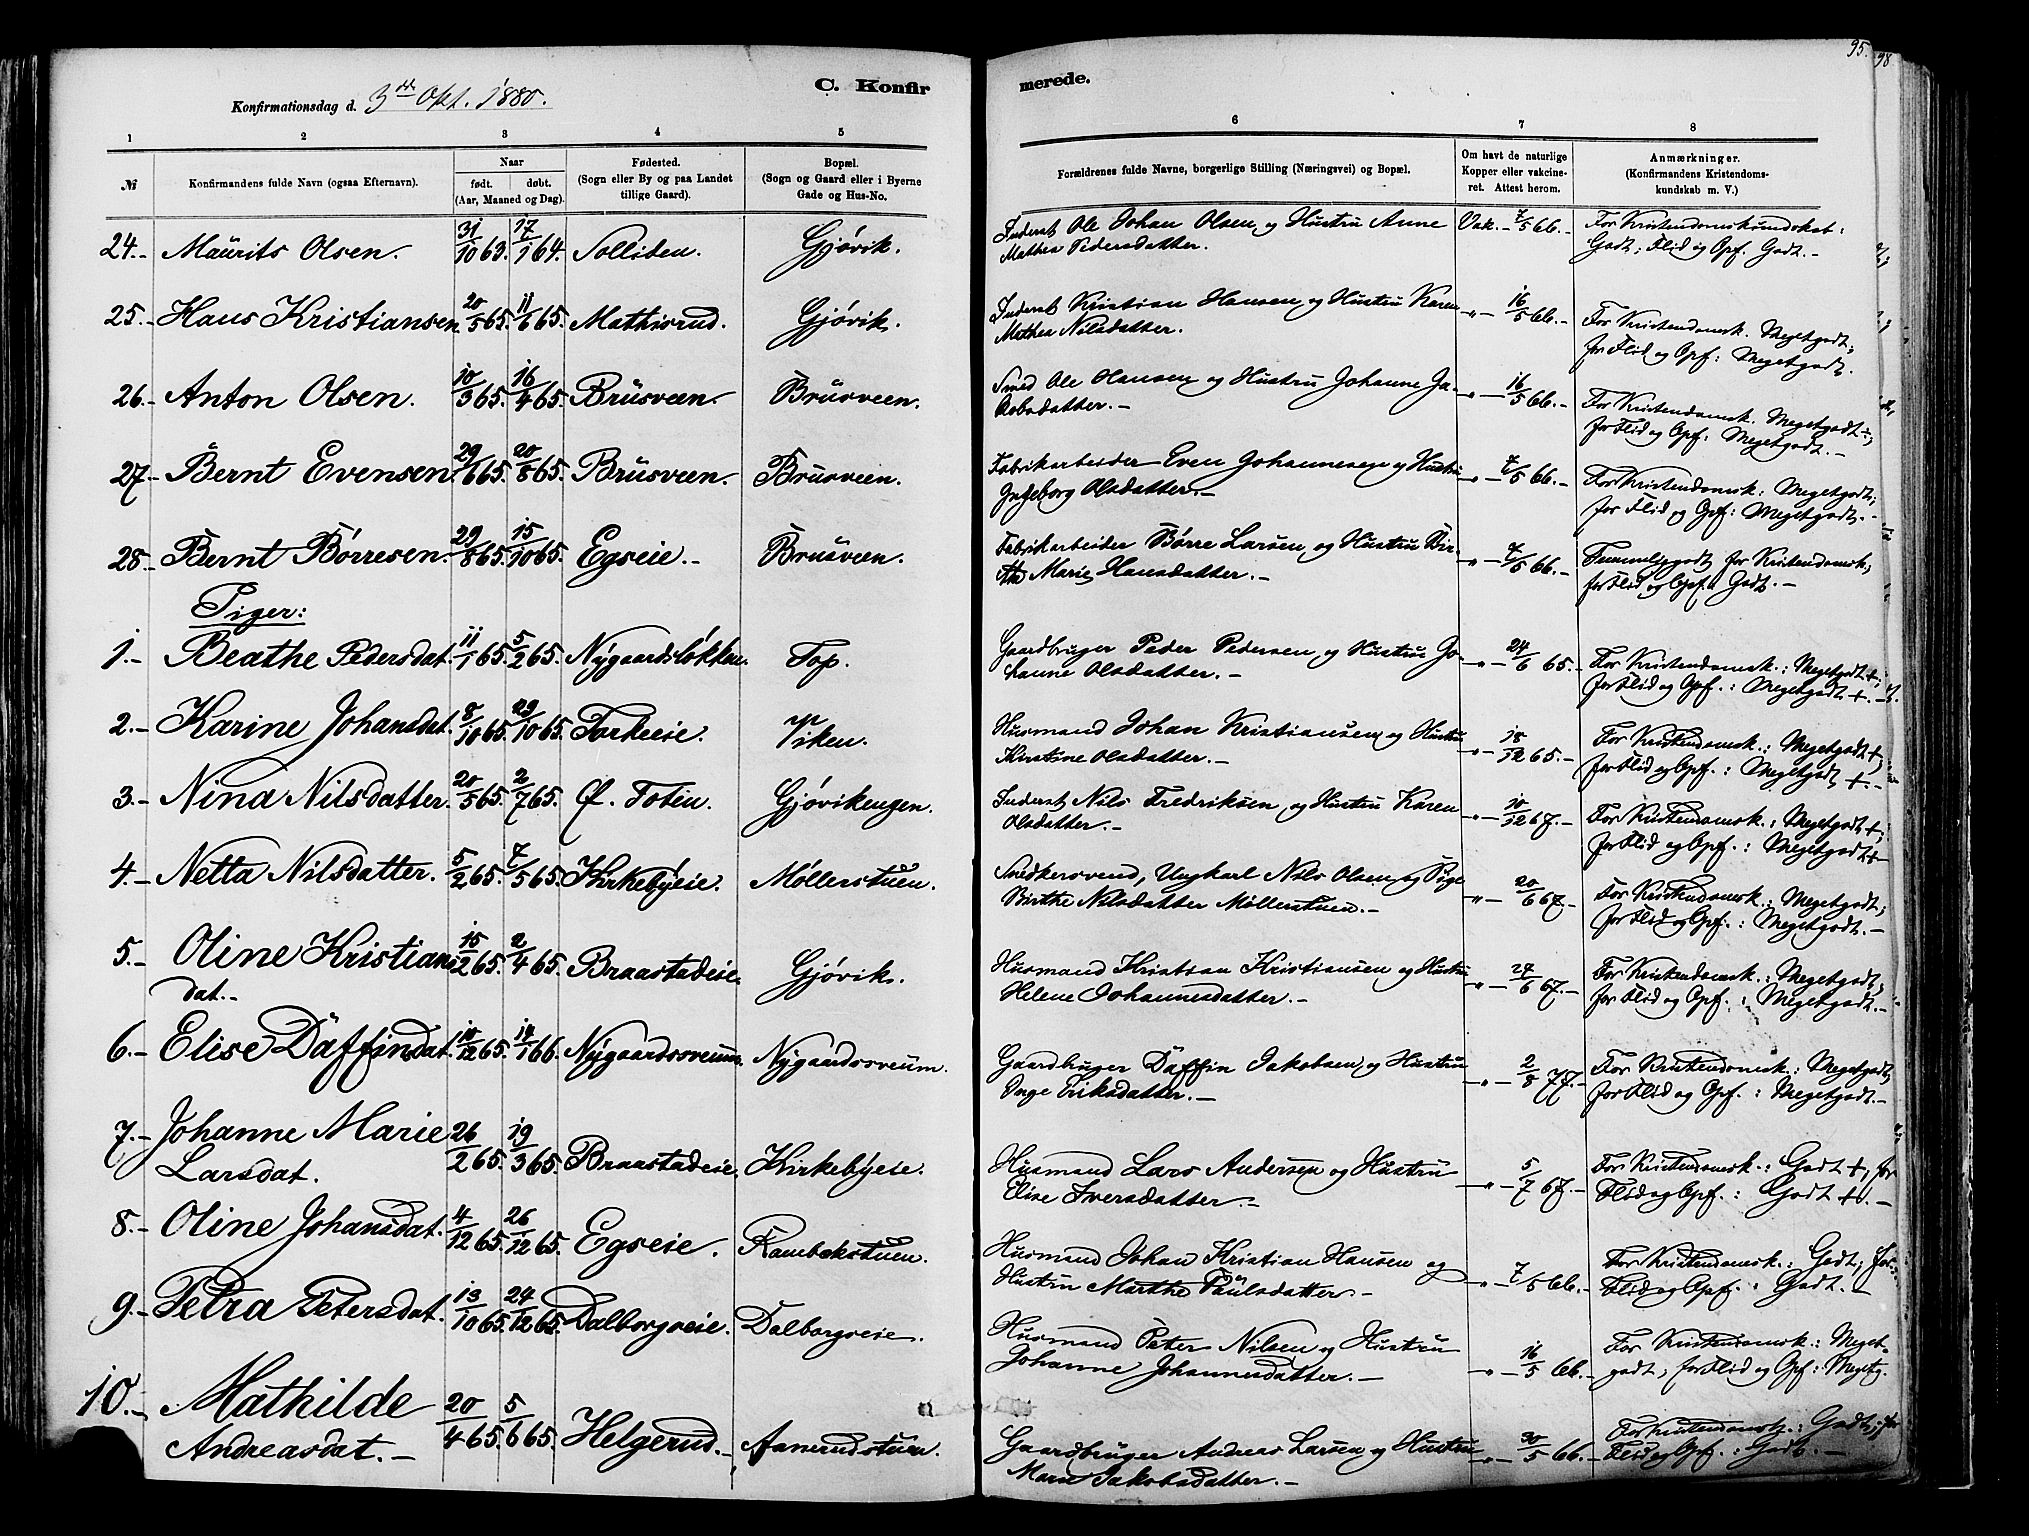 95. 98
Konfirmationsdag d. 3die Okt. 1880.
C. Konfir
merede.
1 2 3 4 5 6 7 8
№
Konfirmandens fulde Navn (ogsaa Efternavn).
Naar
født. døbt.
(Aar, Maaned og Dag).
Fødested.
(Sogn eller By og paa Landet
tillige Gaard).
Bopæl.
(Sogn og Gaard eller i Byerne
Gade og Hus-No.
Forældrenes fulde Navne, borgerlige Stilling (Næringsvei) og Bopæl.
Om havt de naturlige
Kopper eller vakcine-
ret. Attest herom.
Anmærkninger.
(Konfirmandens Kristendoms-
kundskab m. V.)
24.- Maurits Olsen. 31/10 63. 17/1 64. Solliden. Gjøvik. Inderst Ole Johan Olsen, og Hustru Anne Vak. - 7/5 66. - For Kristendomskundskab:
Mathea Pedersdatter. Godt; Flid og Opf. Godt. -
25.- Hans Kristiansen. 20/5 65. 11/6 65. Mathisrud. Gjøvik. Inderst Kristian Hansen, og Hustru Karen „ - 16/5 66. - For Kristendomsk. Megetgodt;
Mathea Nilsdatter. for Flid og Opf: Megetgodt.
26.- Anton Olsen. 10/3 65. 16/4 65. Brusveen. Brusveen. Smed Ole Hansen og Hustru Johanne Ja- „ - 16/5 66. - For Kristendomsk. Megetgodt +;
kobsdatter. - for Flid og Opf: Megetgodt. -
27.- Bernt Evensen. 29/6 65. 20/8 65. Brusveen. Brusveen. Fabrikarbeider Even Johannesen og Hustru „ - 7/5 66. - For Kristendomsk: Megetgodt;
Ingeborg Olsdatter. - for Flid og Opf: Megetgodt. -
28.- Bernt Børresen. 29/8 65. 15/10 65. Egseie. - Brusveen. Fabrikarbeider Børre Larsen, og Hustru Bir- „ - 7/5 66. - Temmeliggodt for Kristendomsk,
the Marie Hansdatter. - for Flid og Opf: Godt. -
Piger:
1.- Beathe Pedersdat. 11/1 65. 5/2 65. Nygaardsløkken. Top. Gaardbruger Peder Pedersen, og Hustru Jo- „ - 24/6 65. - For Kristendomsk.: Megetgodt +;
hanne Olsdatter. - for Flid og Opf.: Megetgodt +. -
2.- Karine Johansdat. 8/10 65. 29/10 65. Viken. Husmand Johan Kristiansen, og Hustru „ - 18/12 65. - For Kristendomsk.: Megetgodt +;
Kristine Olsdatter. - for Flid og Opf.: Megetgodt +. -
3.- Nina Nilsdatter. 20/5 65. 2/7 65. Ø. Toten. Gjøvikengen. Inderst Nils Fredriksen, og Hustru Karen „ - 10/12 67. - For Kristendomsk.: Megetgodt +;
Olsdatter. - for Flid og Opf.: Megetgodt +
4.- Netta Nilsdatter. 5/2 65. 7/5 65. Kirkebyeie. Møllerstuen. Snedkersvend, Ungkarl Nils Olsen og Pige „ - 20/6 67. - For Kristendomsk.: Megetgodt;
Birthe Nilsdatter Møllerstuen. - for Flid og Opf.: Megetgodt. -
5.- Oline Kristians 15/2 65. 2/4 65. Braastadeie. Gjøvik. Husmand Kristian Kristiansen og Hustru „ - 27/6 67. - For Kristendomsk.: Megetgodt,
dat. - Helene Johannesdatter. - for Flid og Opf.: Megetgodt. -
6.- Elise Daffindat. 10/12 65. 14/1 66. Nygaardssveum. Nygaardssveum. Gaardbruger Daffin Jakobsen, og Hustru „ - 2/8 77. - For Kristendomsk.: Megetgodt,
Inge Eriksdatter. - for Flid og Opf.: Megetgodt. -
7.- Johanne Marie 26/2 65. 19/3 65. Braastadeie. Kirkebyeie. Husmand Lars Andersen og Hustru „ - 5/7 67. - For Kristendomsk.: Godt +, for
Larsdat. Elise Iversdatter. - Flid og Opf.: Godt +. -
8.- Oline Johansdat. 4/12 65. 26/12 65. Egseie. Rambekstuen. Husmand Johan Kristian Hansen og „ - 7/5 66. - For Kristendomsk.: Godt, for
Hustru Marthe Paulsdatter. - Flid og Opf.: Godt. -
9.- Petra Petersdat. 13/10 65. 24/12 65. Dalborgseie. Dalborgseie. Husmand Peter Nilsen og Hustru „ - 16/5 66. - For Kristendomsk.: Meget-
Johanne Johannesdatter. - godt, for Flid og Opf: Megetg.
10.- Mathilde 20/4 65. 5/6 65. Helgerud. - Gaardbruger Andreas Larsen og Hustru „ - 30/5 66. - For Kristendomsk.: Godt; for
Andreasdat. - Jakobsdatter. - Flid og Opf.: Godt. -